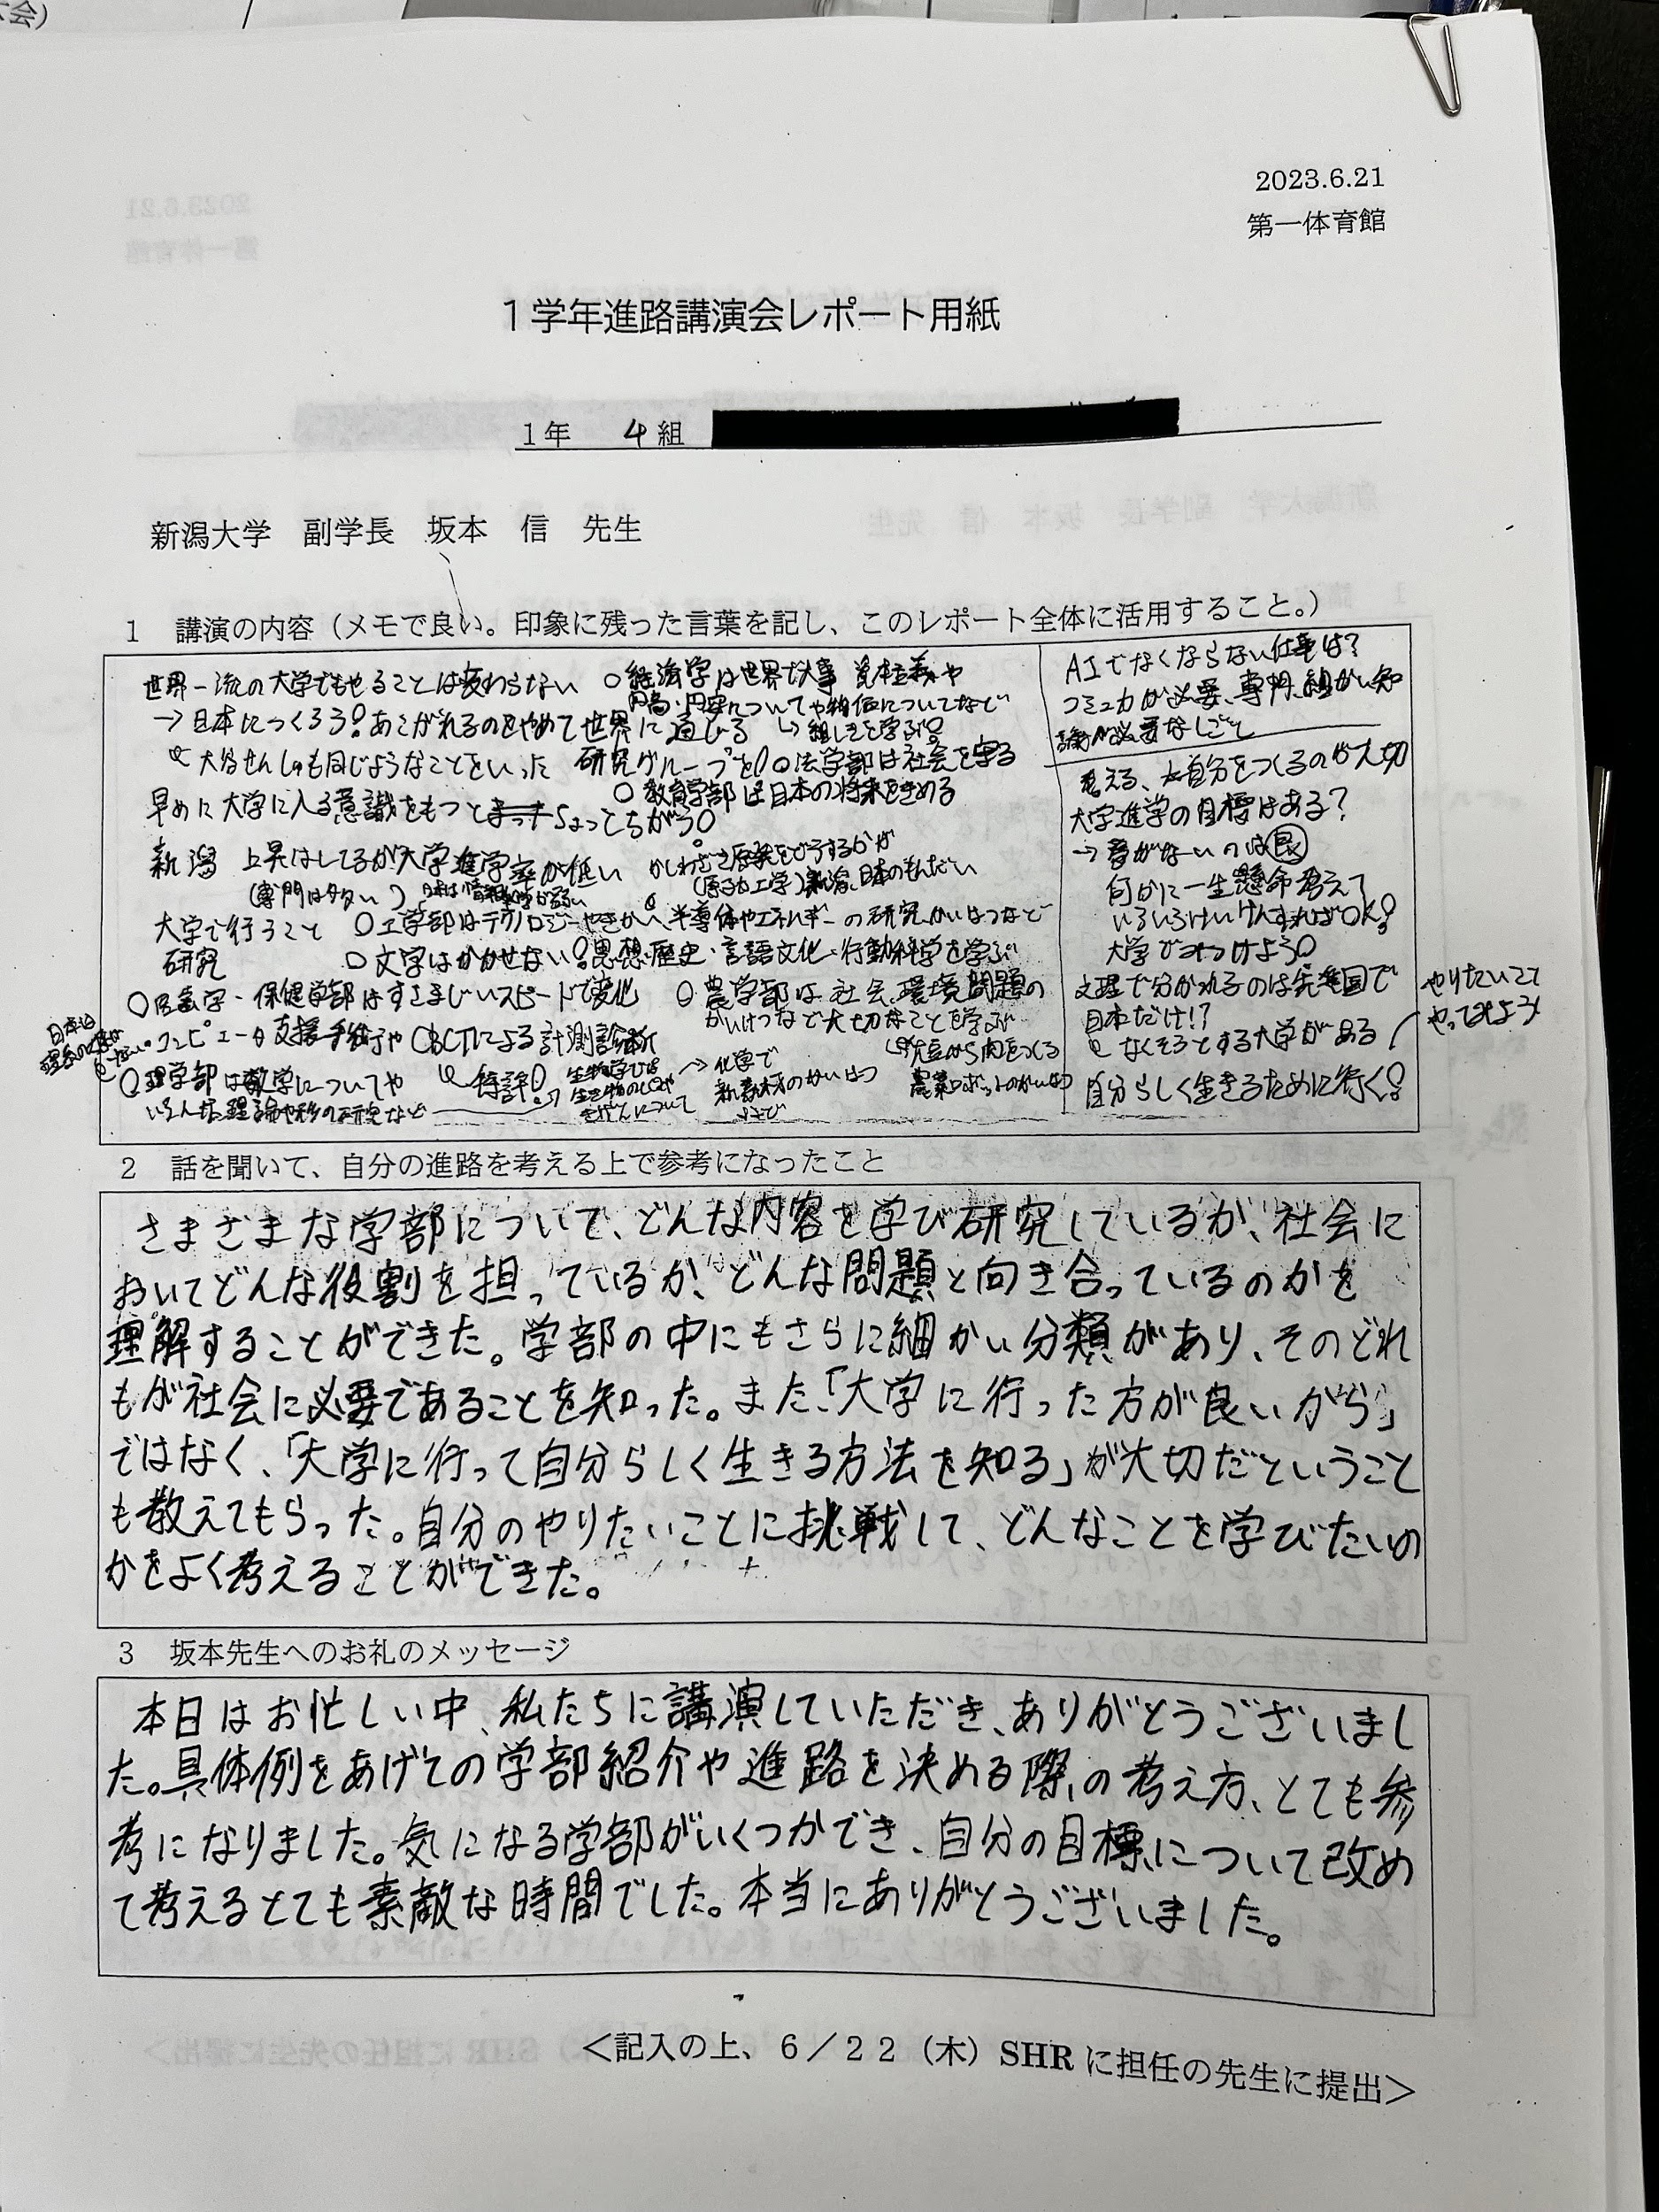 2023.6.21
第一体育館
１学年進路講演会レポート用紙
1年 4組
新潟大学 副学長 坂本 信 先生
1 講演の内容（メモで良い。印象に残った言葉を記し、このレポート全体に活用すること。）
世界一流の大学でもやることは変わらない
→日本につくろう!あこがれるのをやめて世界に通じる
大谷せんしゅも同じようなことをいった 研究グループを!
早めに大学に入る意識をもつと ちょっとちがう!
新潟 上昇はしてるが大学進学率が低い
(専門は多い)
かしわざき原発をどうするか
(原子力工学)新潟、日本のもんだい
大学で行うこと
研究
○工学部はテクノロジーやきかい、半導体やエネルギーの研究・かいはつなど
○文学はかかせない!思想・歴史・言語文化・行動科学を学ぶ
○医歯学・保健学部はすさまじいスピードで変化
コンピュータ支援手術や CBCTによる計測診断
特許!
○理学部は数学についてや
○経済学は世界で大事 資本主義や
円高・円安についてや物価についてなど
組しきを学ぶ!
○法学部は社会を守る
○教育学部は日本の将来をきめる
○農学部は社会、環境問題の
かいけつなど大切なことを学ぶ
大豆から肉をつくる
農業ロボットのかいはつ
→化学で
新素材のかいはつ
AIでなくならない仕事は?
コミュ力が必要、専門、細かい知
識が必要なしごと
考える、自分をつくるのが大切
大学進学の目標はある?
→夢がないのは良
何かに一生懸命考えて
いろいろけいけんすればOK!
大学でみつけよう!
文理で分かれるのは先進国で
日本だけ!?
なくそうとする大学がある
自分らしく生きるために行く!
やりたいこと
やってみよう!
2 話を聞いて、自分の進路を考える上で参考になったこと
さまざまな学部について、どんな内容を学び研究しているか、社会に
おいてどんな役割を担っているか、どんな問題と向き合っているのかを
理解することができた。学部の中にもさらに細かい分類があり、そのどれ
もが社会に必要であることを知った。また、「大学に行った方が良いから」
ではなく、「大学に行って自分らしく生きる方法を知る」が大切だということ
も教えてもらった。自分のやりたいことに挑戦して、どんなことを学びたいの
かをよく考えることができた。
3 坂本先生へのお礼のメッセージ
本日はお忙しい中、私たちに講演していただき、ありがとうございまし
た。具体例をあげての学部紹介や進路を決める際の考え方、とても参
考になりました。気になる学部がいくつかでき、自分の目標について改め
て考えるとても素敵な時間でした。本当にありがとうございました。
＜記入の上、６／２２（木）SHRに担任の先生に提出＞